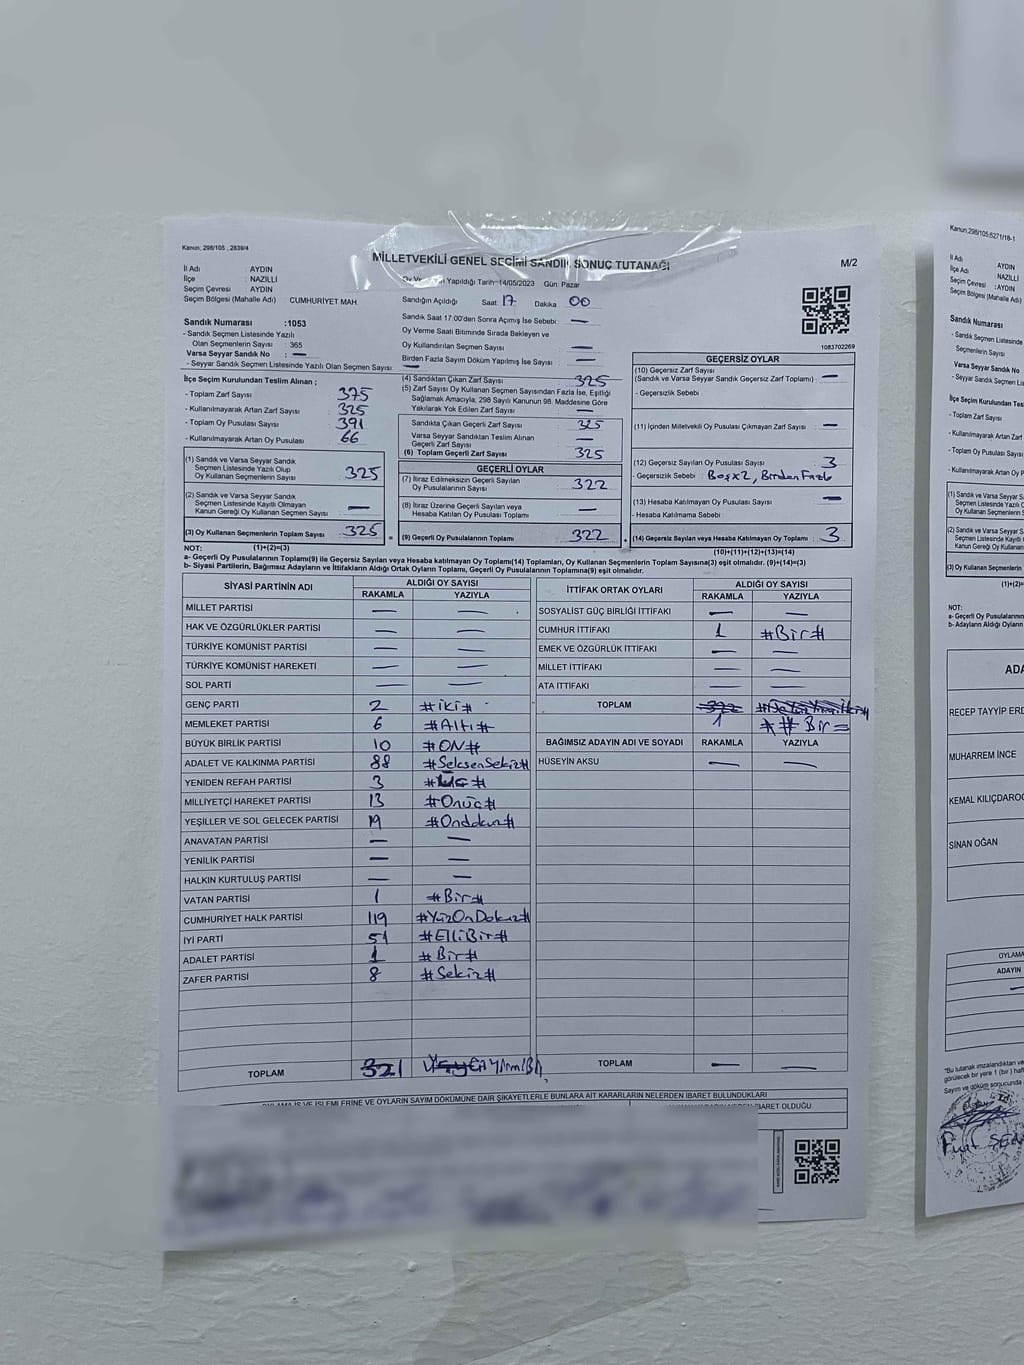 Kanun: 298/105 , 2839/4
MİLLETVEKİLİ GENEL SEÇİMİ SANDIK SONUÇ TUTANAĞI
M/2
İl Adı : AYDIN
İlçe : NAZİLLİ
Seçim Çevresi : AYDIN
Seçim Bölgesi (Mahalle Adı) CUMHURİYET MAH.
Yapıldığı Tarih 14/05/2023 Gün: Pazar
Sandığın Açıldığı Saat 17 Dakika 00
Sandık Saat 17.00'den Sonra Açımış İse Sebebi : —
Oy Verme Saati Bitiminde Sırada Bekleyen ve
Oy Kullandırılan Seçmen Sayısı : —
Birden Fazla Sayım Döküm Yapılmış İse Sayısı : —
1083702269
Sandık Numarası :1053
- Sandık Seçmen Listesinde Yazılı
Olan Seçmenlerin Sayısı : 365
Varsa Seyyar Sandık No : —
- Seyyar Sandık Seçmen Listesinde Yazılı Olan Seçmen Sayısı : —
İlçe Seçim Kurulundan Teslim Alınan ;
- Toplam Zarf Sayısı : 375
- Kullanılmayarak Artan Zarf Sayısı : 325
- Toplam Oy Pusulası Sayısı : 391
- Kullanılmayarak Artan Oy Pusulası : 66
(1) Sandık ve Varsa Seyyar Sandık
Seçmen Listesinde Yazılı Olup
Oy Kullanan Seçmenlerin Sayısı 325
(2) Sandık ve Varsa Seyyar Sandık
Seçmen Listesinde Kayıtlı Olmayan
Kanun Gereği Oy Kullanan Seçmen Sayısı —
(3) Oy Kullanan Seçmenlerin Toplam Sayısı 325
(1)+(2)=(3)
(4) Sandıktan Çıkan Zarf Sayısı : 325
(5) Zarf Sayısı Oy Kullanan Seçmen Sayısından Fazla İse, Eşitliği
Sağlamak Amacıyla; 298 Sayılı Kanunun 98. Maddesine Göre
Yakılarak Yok Edilen Zarf Sayısı : —
Sandıkta Çıkan Geçerli Zarf Sayısı : 325
Varsa Seyyar Sandıktan Teslim Alınan
Geçerli Zarf Sayısı : —
(6) Toplam Geçerli Zarf Sayısı : 325
GEÇERLİ OYLAR
(7) İtiraz Edilmeksizin Geçerli Sayılan
Oy Pusulalarının Sayısı : 322
(8) İtiraz Üzerine Geçerli Sayılan veya
Hesaba Katılan Oy Pusulası Toplamı : —
(9) Geçerli Oy Pusulalarının Toplamı : 322
GEÇERSİZ OYLAR
(10) Geçersiz Zarf Sayısı
(Sandık ve Varsa Seyyar Sandık Geçersiz Zarf Toplamı) : —
- Geçersizlik Sebebi :
(11) İçinden Milletvekili Oy Pusulası Çıkmayan Zarf Sayısı : —
(12) Geçersiz Sayılan Oy Pusulası Sayısı : 3
- Geçersizlik Sebebi : Boşx2, Birden Fazla
(13) Hesaba Katılmayan Oy Pusulası Sayısı : —
- Hesaba Katılmama Sebebi :
(14) Geçersiz Sayılan veya Hesaba Katılmayan Oy Toplamı : 3
(10)+(11)+(12)+(13)=(14)
NOT:
a- Geçerli Oy Pusulalarının Toplamı(9) ile Geçersiz Sayılan veya Hesaba katılmayan Oy Toplamı(14) Toplamları, Oy Kullanan Seçmenlerin Toplam Sayısına(3) eşit olmalıdır. (9)+(14)=(3)
b- Siyasi Partilerin, Bağımsız Adayların ve İttifakların Aldığı Ortak Oyların Toplamı, Geçerli Oy Pusulalarının Toplamına(9) eşit olmalıdır.
SİYASİ PARTİNİN ADI ALDIĞI OY SAYISI
RAKAMLA YAZIYLA
MİLLET PARTİSİ — —
HAK VE ÖZGÜRLÜKLER PARTİSİ — —
TÜRKİYE KOMÜNİST PARTİSİ — —
TÜRKİYE KOMÜNİST HAREKETİ — —
SOL PARTİ — —
GENÇ PARTİ 2 #iki#
MEMLEKET PARTİSİ 6 #Altı#
BÜYÜK BİRLİK PARTİSİ 10 #ON#
ADALET VE KALKINMA PARTİSİ 88 #SeksenSekiz#
YENİDEN REFAH PARTİSİ 3 #Üç#
MİLLİYETÇİ HAREKET PARTİSİ 13 #Onüç#
YEŞİLLER VE SOL GELECEK PARTİSİ 19 #Ondokuz#
ANAVATAN PARTİSİ — —
YENİLİK PARTİSİ — —
HALKIN KURTULUŞ PARTİSİ — —
VATAN PARTİSİ 1 #Bir#
CUMHURİYET HALK PARTİSİ 119 #YüzOnDokuz#
İYİ PARTİ 51 #ElliBir#
ADALET PARTİSİ 1 #Bir#
ZAFER PARTİSİ 8 #Sekiz#
TOPLAM 321
İTTİFAK ORTAK OYLARI ALDIĞI OY SAYISI
RAKAMLA YAZIYLA
SOSYALİST GÜÇ BİRLİĞİ İTTİFAKI — —
CUMHUR İTTİFAKI 1 #Bir#
EMEK VE ÖZGÜRLÜK İTTİFAKI — —
MİLLET İTTİFAKI — —
ATA İTTİFAKI — —
TOPLAM 322
1 ## Bir =
BAĞIMSIZ ADAYIN ADI VE SOYADI RAKAMLA YAZIYLA
HÜSEYİN AKSU — —
TOPLAM — —
İŞLEMLERİNE VE OYLARIN SAYIM DÖKÜMÜNE DAİR ŞİKAYETLERLE BUNLARA AİT KARARLARIN NELERDEN İBARET BULUNDUKLARI
İBARET OLDUĞU
Kanun:298/105;6271/18-1
İl Adı : AYDIN
İlçe Adı : NAZİLLİ
Seçim Çevresi :AYDIN
Seçim Bölgesi (Mahalle Adı)
Sandık Numarası
- Sandık Seçmen Listesinde
Seçmenlerin Sayısı
Varsa Seyyar Sandık
- Seyyar Sandık Seçmen Lis
İlçe Seçim Kurulundan Tes
- Toplam Zarf Sayısı
- Kullanılmayarak Artan Zarf
- Toplam Oy Pusulası Sayısı
- Kullanılmayarak Artan Oy
(1) Sandık ve Varsa Seyyar
Seçmen Listesinde Yazılı
Oy Kullanan Seçmenlerin
(2) Sandık ve Varsa Seyyar
Seçmen Listesinde Kayıtlı
Kanun Gereği Oy Kullanan
(3) Oy Kullanan Seçmenlerin
(1)+(2)=
NOT:
a- Geçerli Oy Pusulalarının
b- Adayların Aldığı Oyların
ADA
RECEP TAYYİP ERD
MUHARREM İNCE
KEMAL KILIÇDAROĞ
SİNAN OĞAN
OYLAMA
ADAYIN
"Bu tutanak imzalandıktan ve
görülecek bir yere 1 (bir) haft
Sayım ve döküm sonucunda